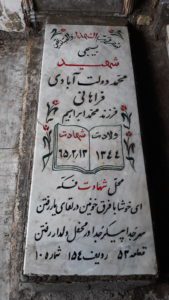 بسیجی
شهید
محمد دولت آبادی
فراهانی
فرزند محمد ابراهیم
ولادت شهادت
۱۳۴۴ ۶۵/۲/۱۳
محل شهادت فکه
ای خوشا با فرق خونین در لقای یار رفتن
سر جدا پیکر جدا در محفل دلدار رفتن
قطعه ۵۳ ردیف ۱۵۴ شماره ۱۰